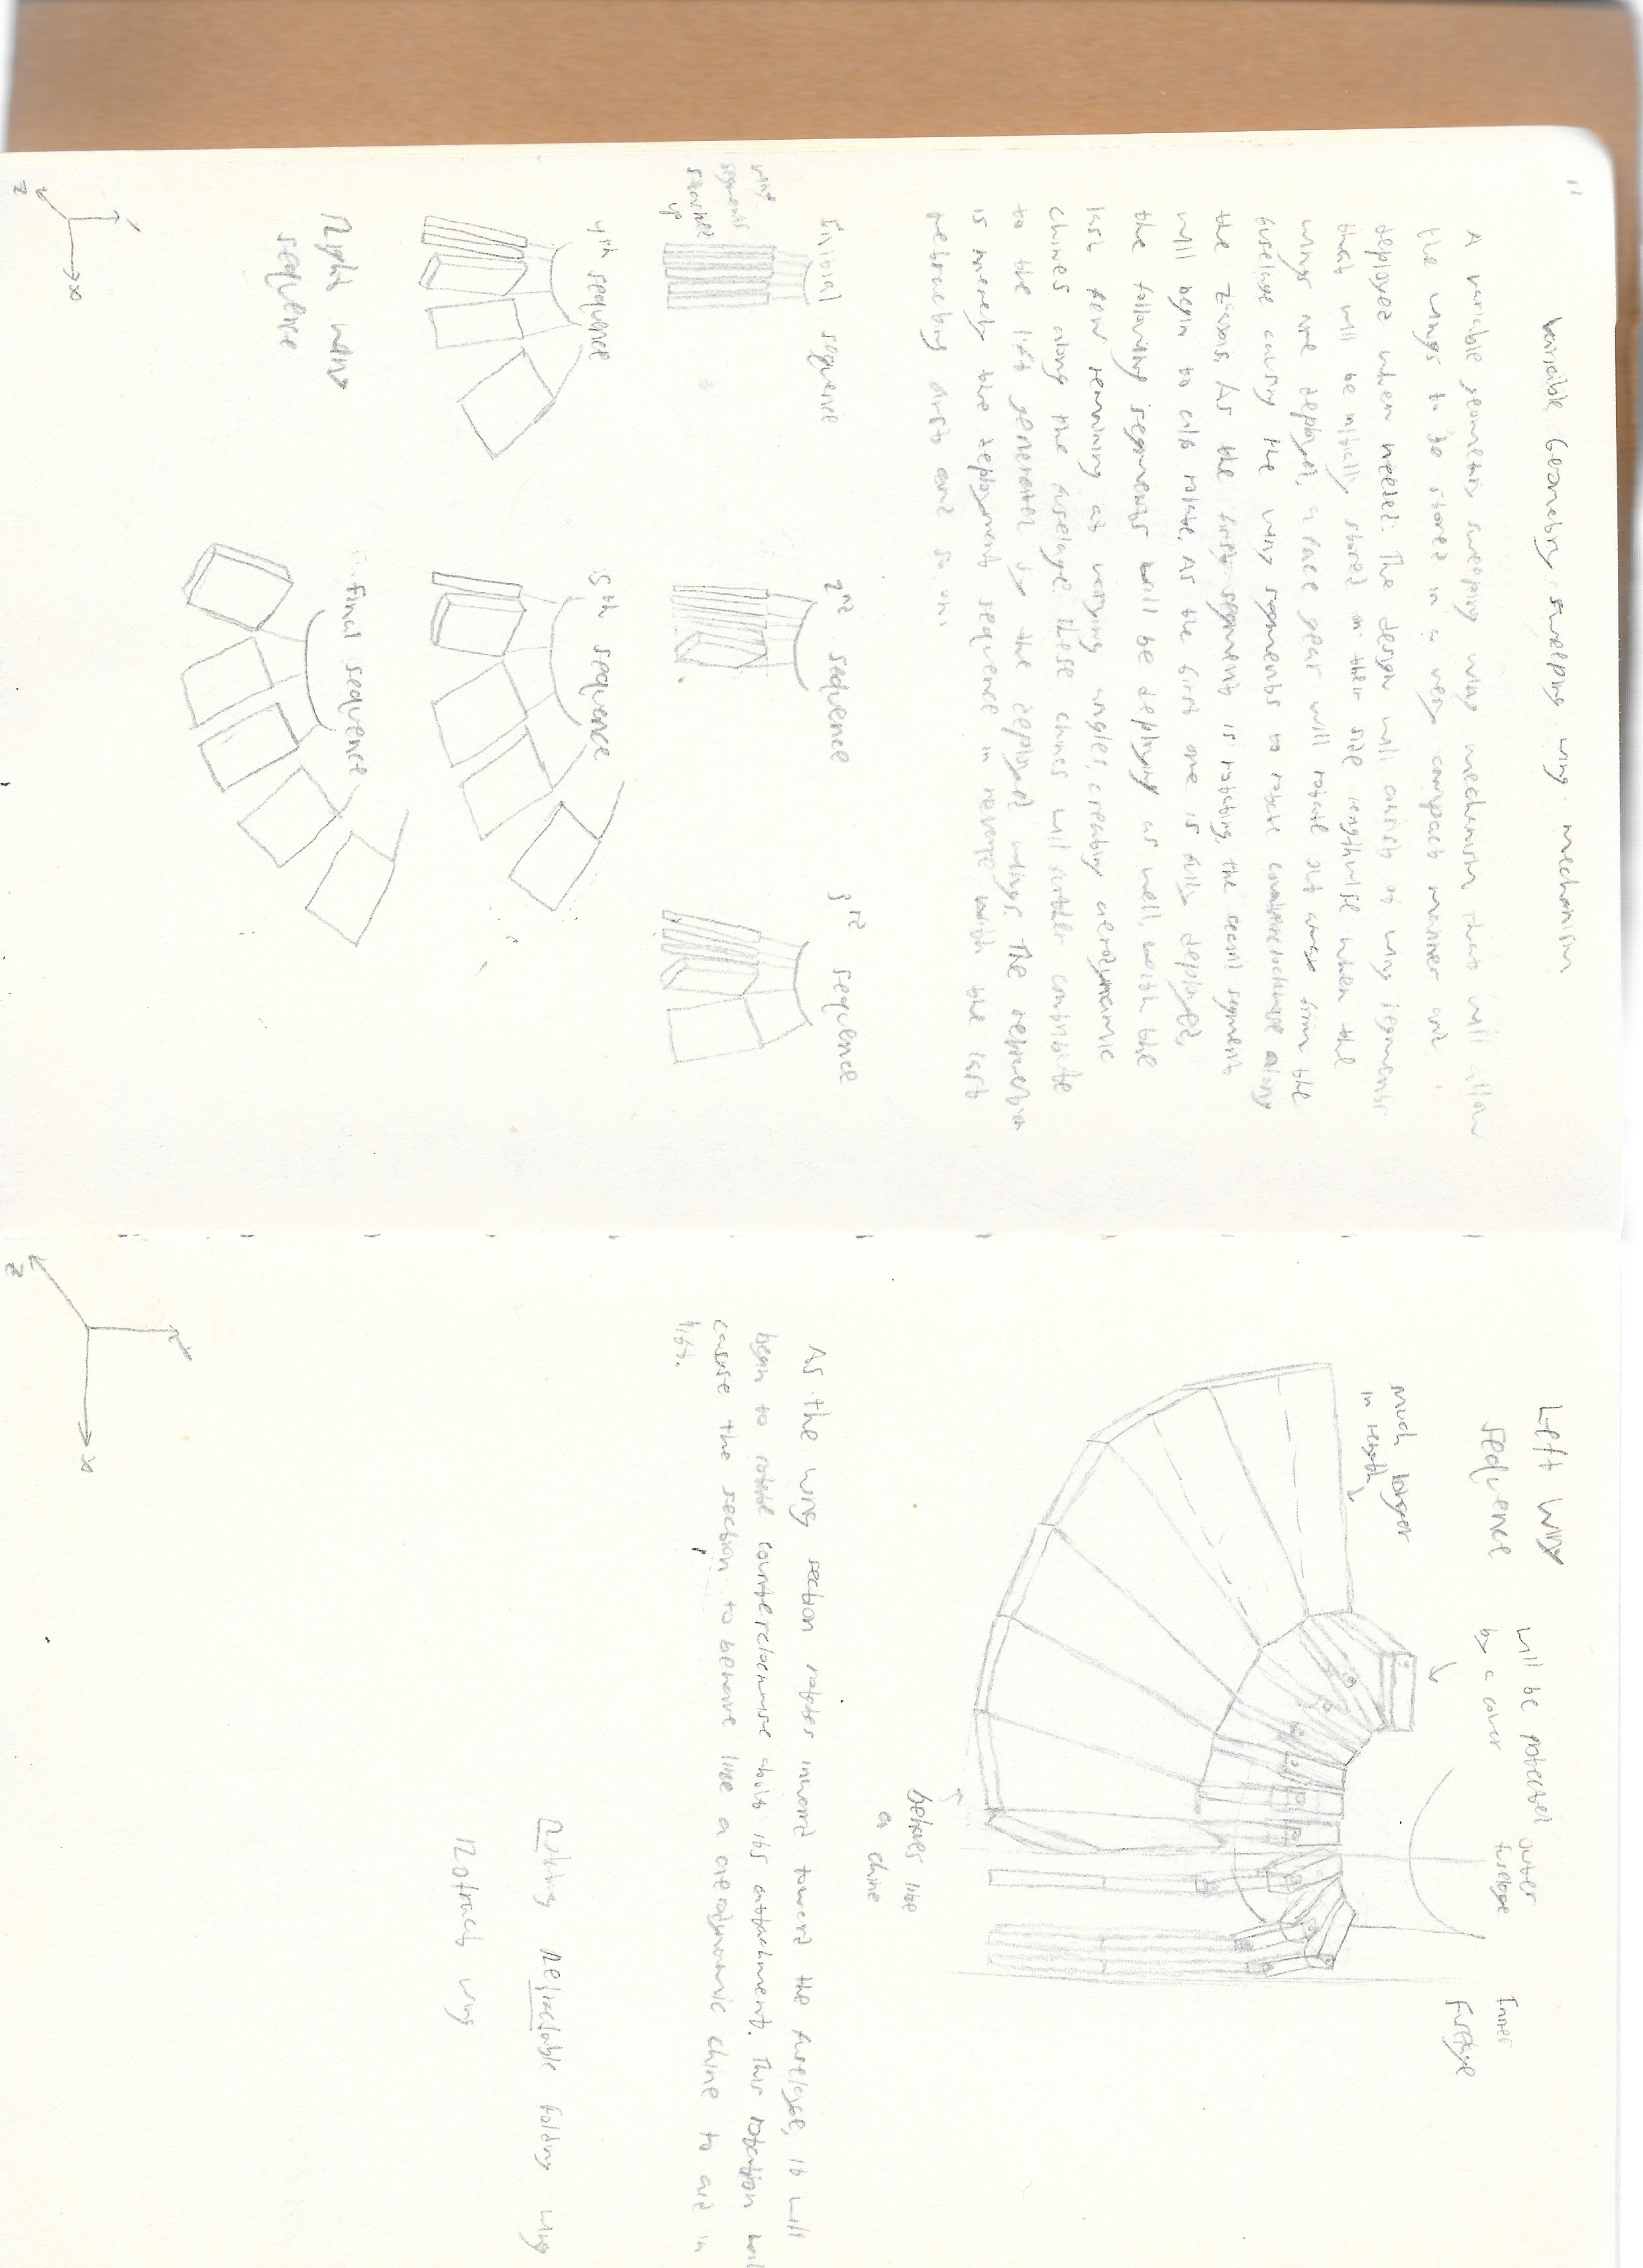 11
Variable Geometry sweeping wing mechanism
A variable geometry sweeping wing mechanism that will allow
the wings to be stored in a very compact manner and
deployed when needed. The design will consist of wing segments
that will be initially stored on their side lengthwise when the
wings are deployed, a face gear will rotate out away from the
fuselage causing the wing segments to rotate counterclockwise along
the z-axis. As the first segment is rotating, the second segment
will begin to also rotate. As the first one is fully deployed,
the following segments will be deploying as well, with the
last few remaining at varying angles, creating aerodynamic
chines along the fuselage. These chines will further contribute
to the lift generated by the deployed wings. The retraction
is merely the deployment sequence in reverse with the last
retracting first and so on.
Initial sequence
2nd sequence
3rd sequence
wing
segments
stacked
up
4th sequence
5th sequence
Right wing
sequence
final sequence
Y
X
Z
Left Wing
sequence
will be protected
by a cover
outer
fuselage
Inner
Fuselage
much longer
in length
behaves like
a chine
As the wing section rotates inward toward the fuselage, it will
begin to rotate counterclockwise about its attachment. This rotation will
cause the section to behave like a aerodynamic chine to aid in
lift.
Rotating Retractable Folding wing
Rotract wing
Y
X
Z